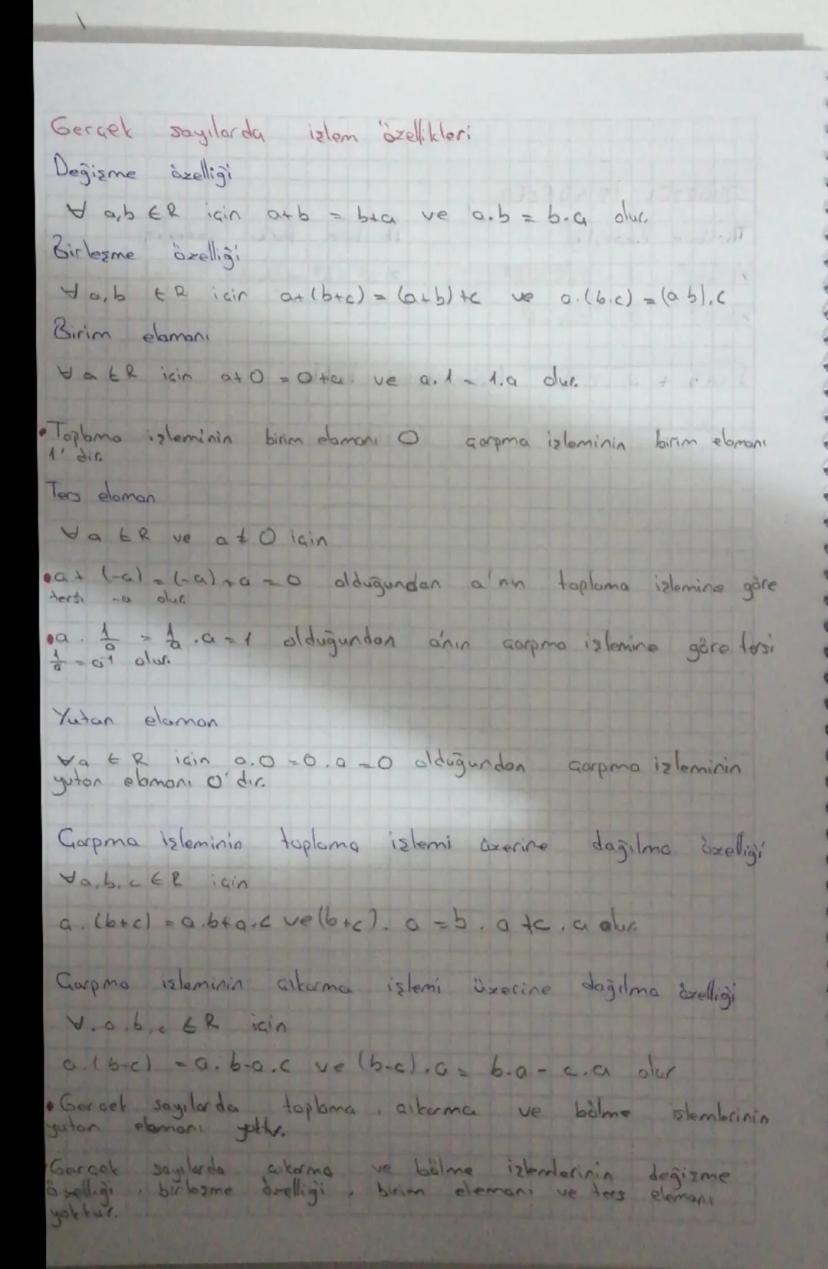 Gerçek sayılarda işlem özellikleri
Değişme özelliği
∀ a,b ∈ R için a+b = b+a ve a.b = b.a olur.
Birleşme özelliği
∀ a,b ∈ R için a+(b+c) = (a+b)+c ve a.(b.c) = (a.b).c
Birim elamanı
∀ a ∈ R için a+0 = 0+a ve a.1 = 1.a olur.
• Toplama işleminin birim elamanı 0 çarpma işleminin birim elamanı
1' dir.
Ters elaman
∀ a ∈ R ve a ≠ 0 için
• a+ (-a) = (-a)+a = 0 olduğundan a'nın toplama işlemine göre
tersi -a olur.
• a. 1/a = 1/a .a = 1 olduğundan a'nın çarpma işlemine göre tersi
1/a = a⁻¹ olur.
Yutan elaman
∀a ∈ R için a.0 = 0.a = 0 olduğundan çarpma işleminin
yutan elamanı 0' dır.
Çarpma işleminin toplama işlemi üzerine dağılma özelliği
∀a,b,c ∈ R için
a.(b+c) = a.b+a.c ve (b+c). a = b.a+c.a olur.
Çarpma işleminin çıkarma işlemi üzerine dağılma özelliği
∀.a.b,c ∈ R için
a.(b-c) = a.b-a.c ve (b-c).a = b.a - c.a olur
• Gerçek sayılarda toplama, çıkarma ve bölme işlemlerinin
yutan elamanı yoktur.
Gerçek sayılarda çıkarma ve bölme işlemlerinin değişme
özelliği, birleşme özelliği, birim elemanı ve ters elemanı
yoktur.